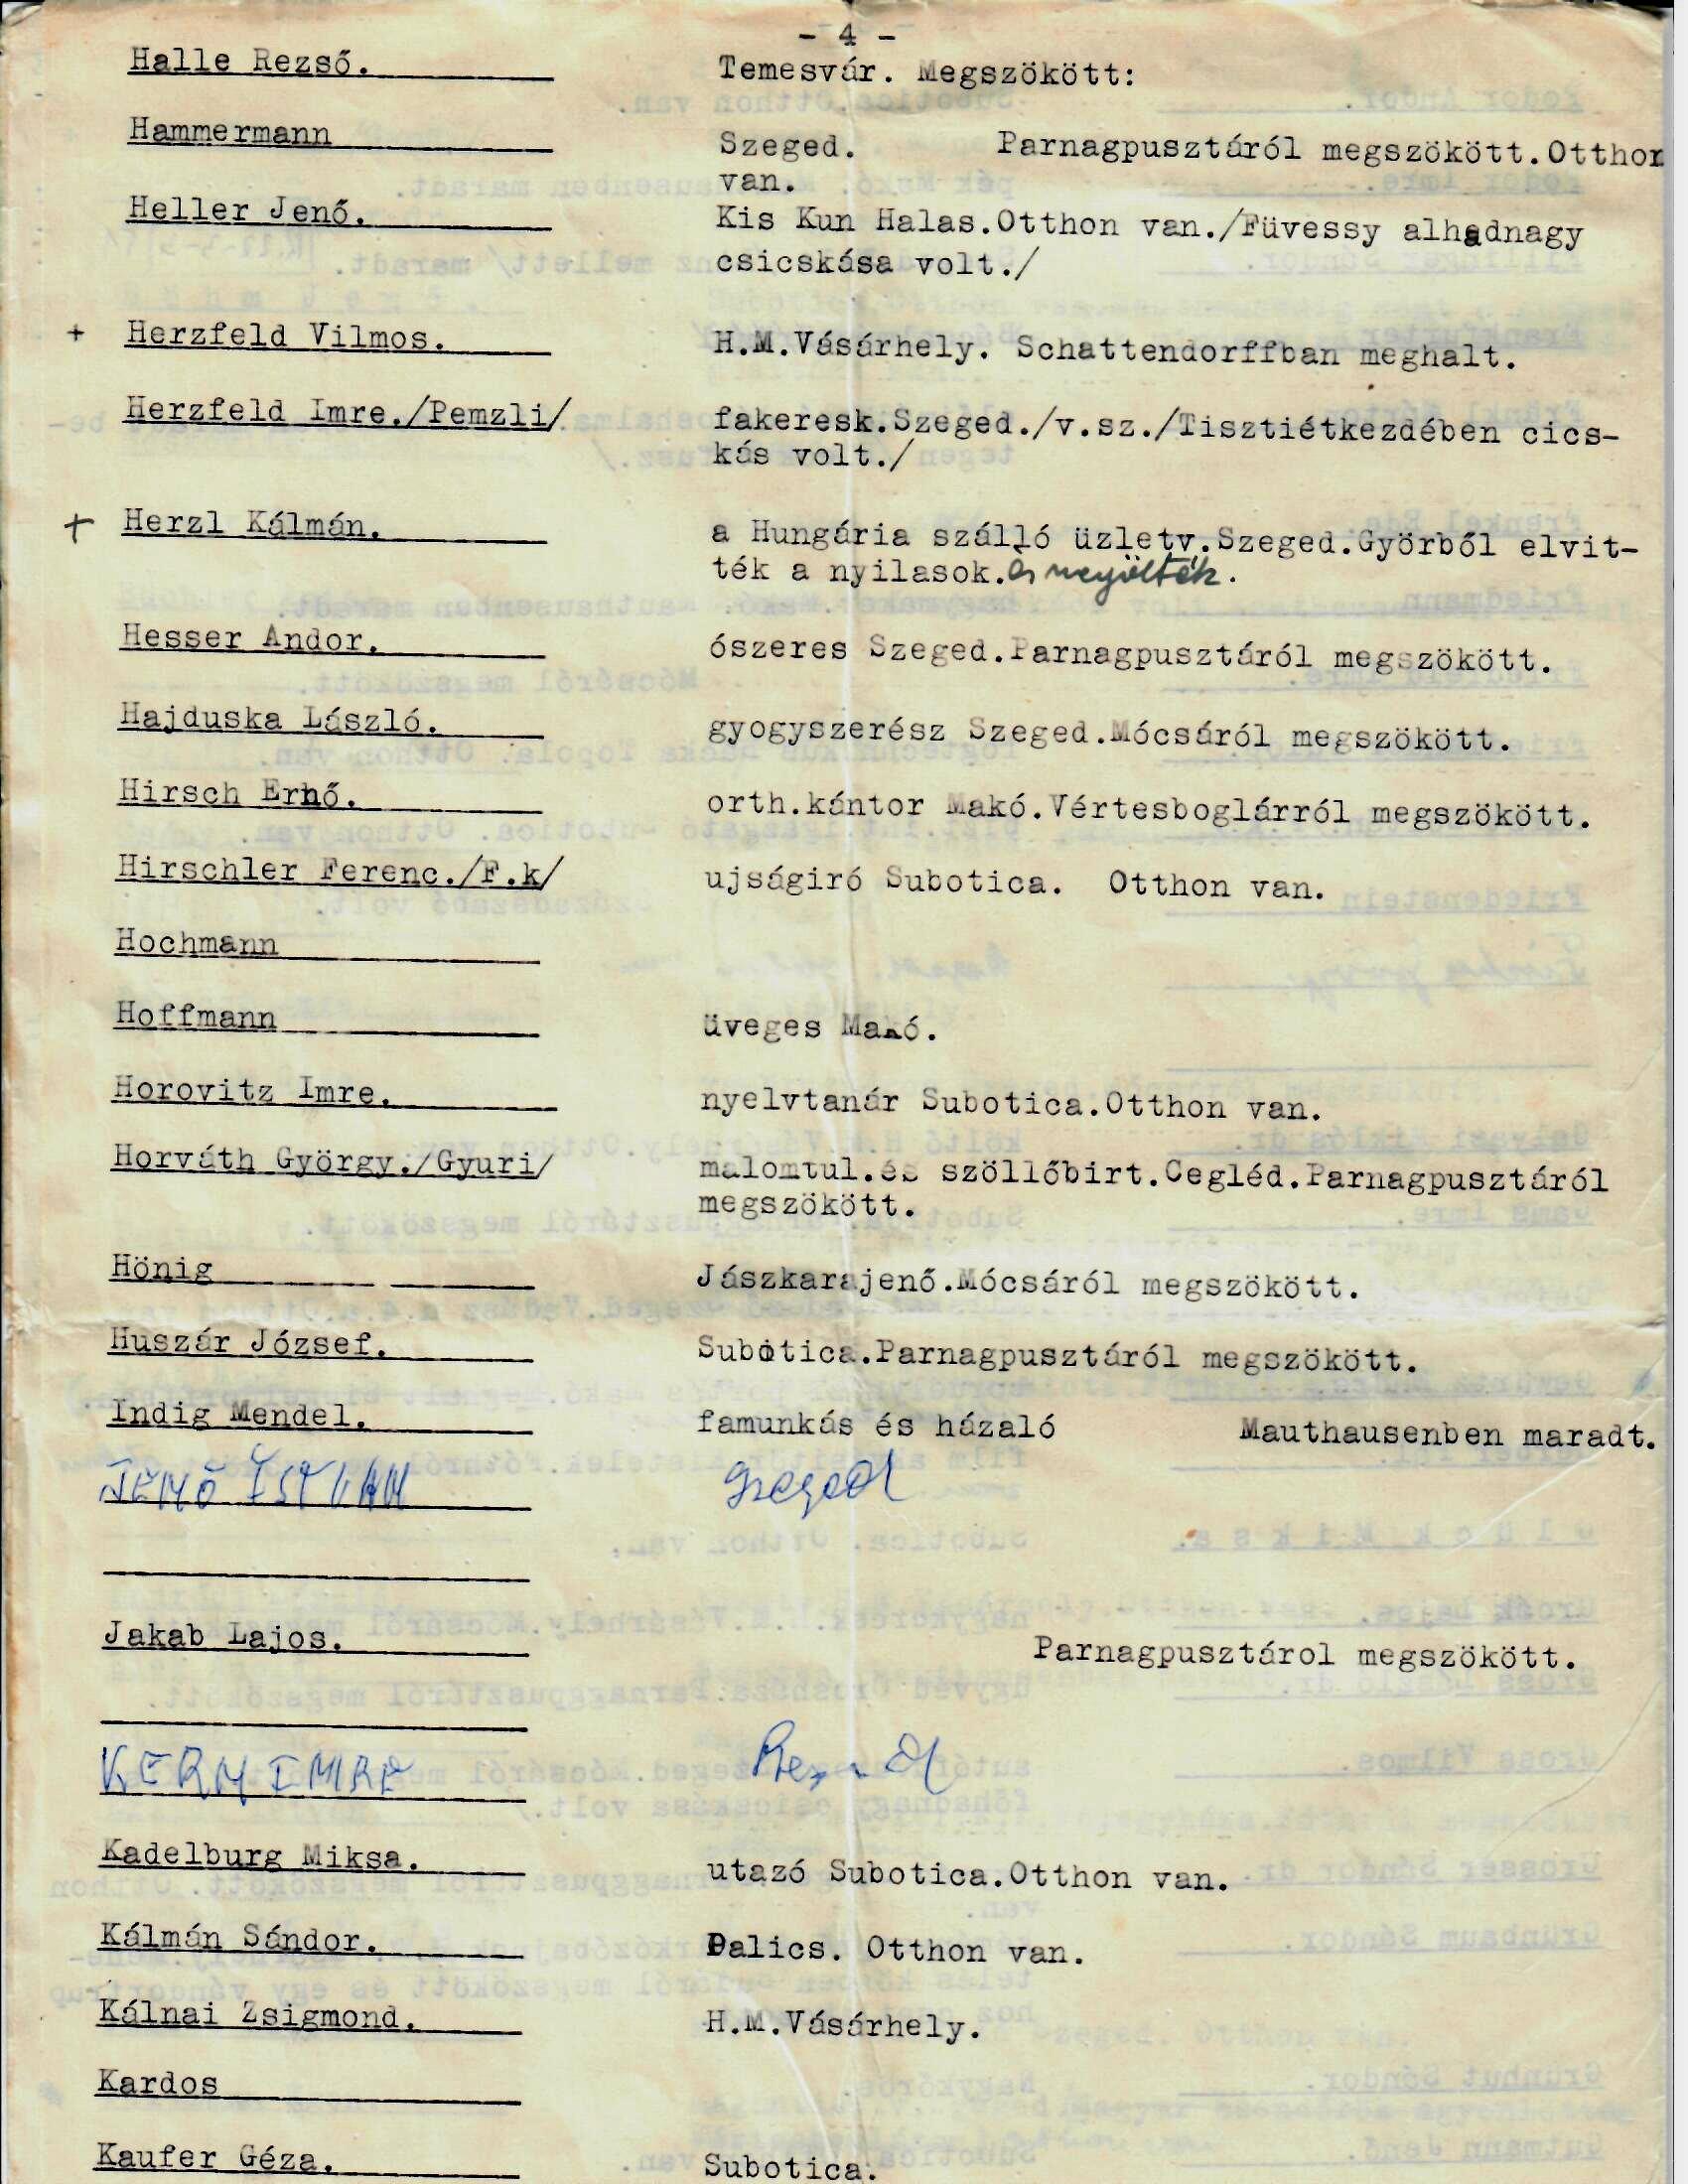 - 4 -
Halle Rezső. Temesvár. Megszökött:
Hammermann Szeged. Parnagpusztáról megszökött.Otthon
van.
Heller Jenő. Kis Kun Halas.Otthon van./Füvessy alhadnagy
csicskása volt./
+ Herzfeld Vilmos. H.M.Vásárhely. Schattendorffban meghalt.
Herzfeld Imre./Pemzli/ fakeresk.Szeged./v.sz./Tisztiétkezdében cics-
kás volt./
+ Herzl Kálmán. a Hungária szálló üzletv.Szeged.Győrből elvit-
ték a nyilasok.és megölték.
Hesser Andor. ószeres Szeged.Parnagpusztáról megszökött.
Hajduska László. gyogyszerész Szeged.Mócsáról megszökött.
Hirsch Ernő. orth.kántor Makó.Vértesboglárról megszökött.
Hirschler Ferenc./F.k/ ujságiró Subotica. Otthon van.
Hochmann
Hoffmann üveges Makó.
Horovitz Imre. nyelvtanár Subotica.Otthon van.
Horváth György./Gyuri/ malomtul.és szöllőbirt.Cegléd.Parnagpusztáról
megszökött.
Hönig Jászkarajenő.Mócsáról megszökött.
Huszár József. Subotica.Parnagpusztáról megszökött.
Indig Mendel. famunkás és házaló Mauthausenben maradt.
JENŐ ISTVÁN Szeged
Jakab Lajos. Parnagpusztárol megszökött.
KERN IMRE
Kadelburg Miksa. utazó Subotica.Otthon van.
Kálmán Sándor. Palics. Otthon van.
Kálnai Zsigmond. H.M.Vásárhely.
Kardos
Kaufer Géza. Subotica.